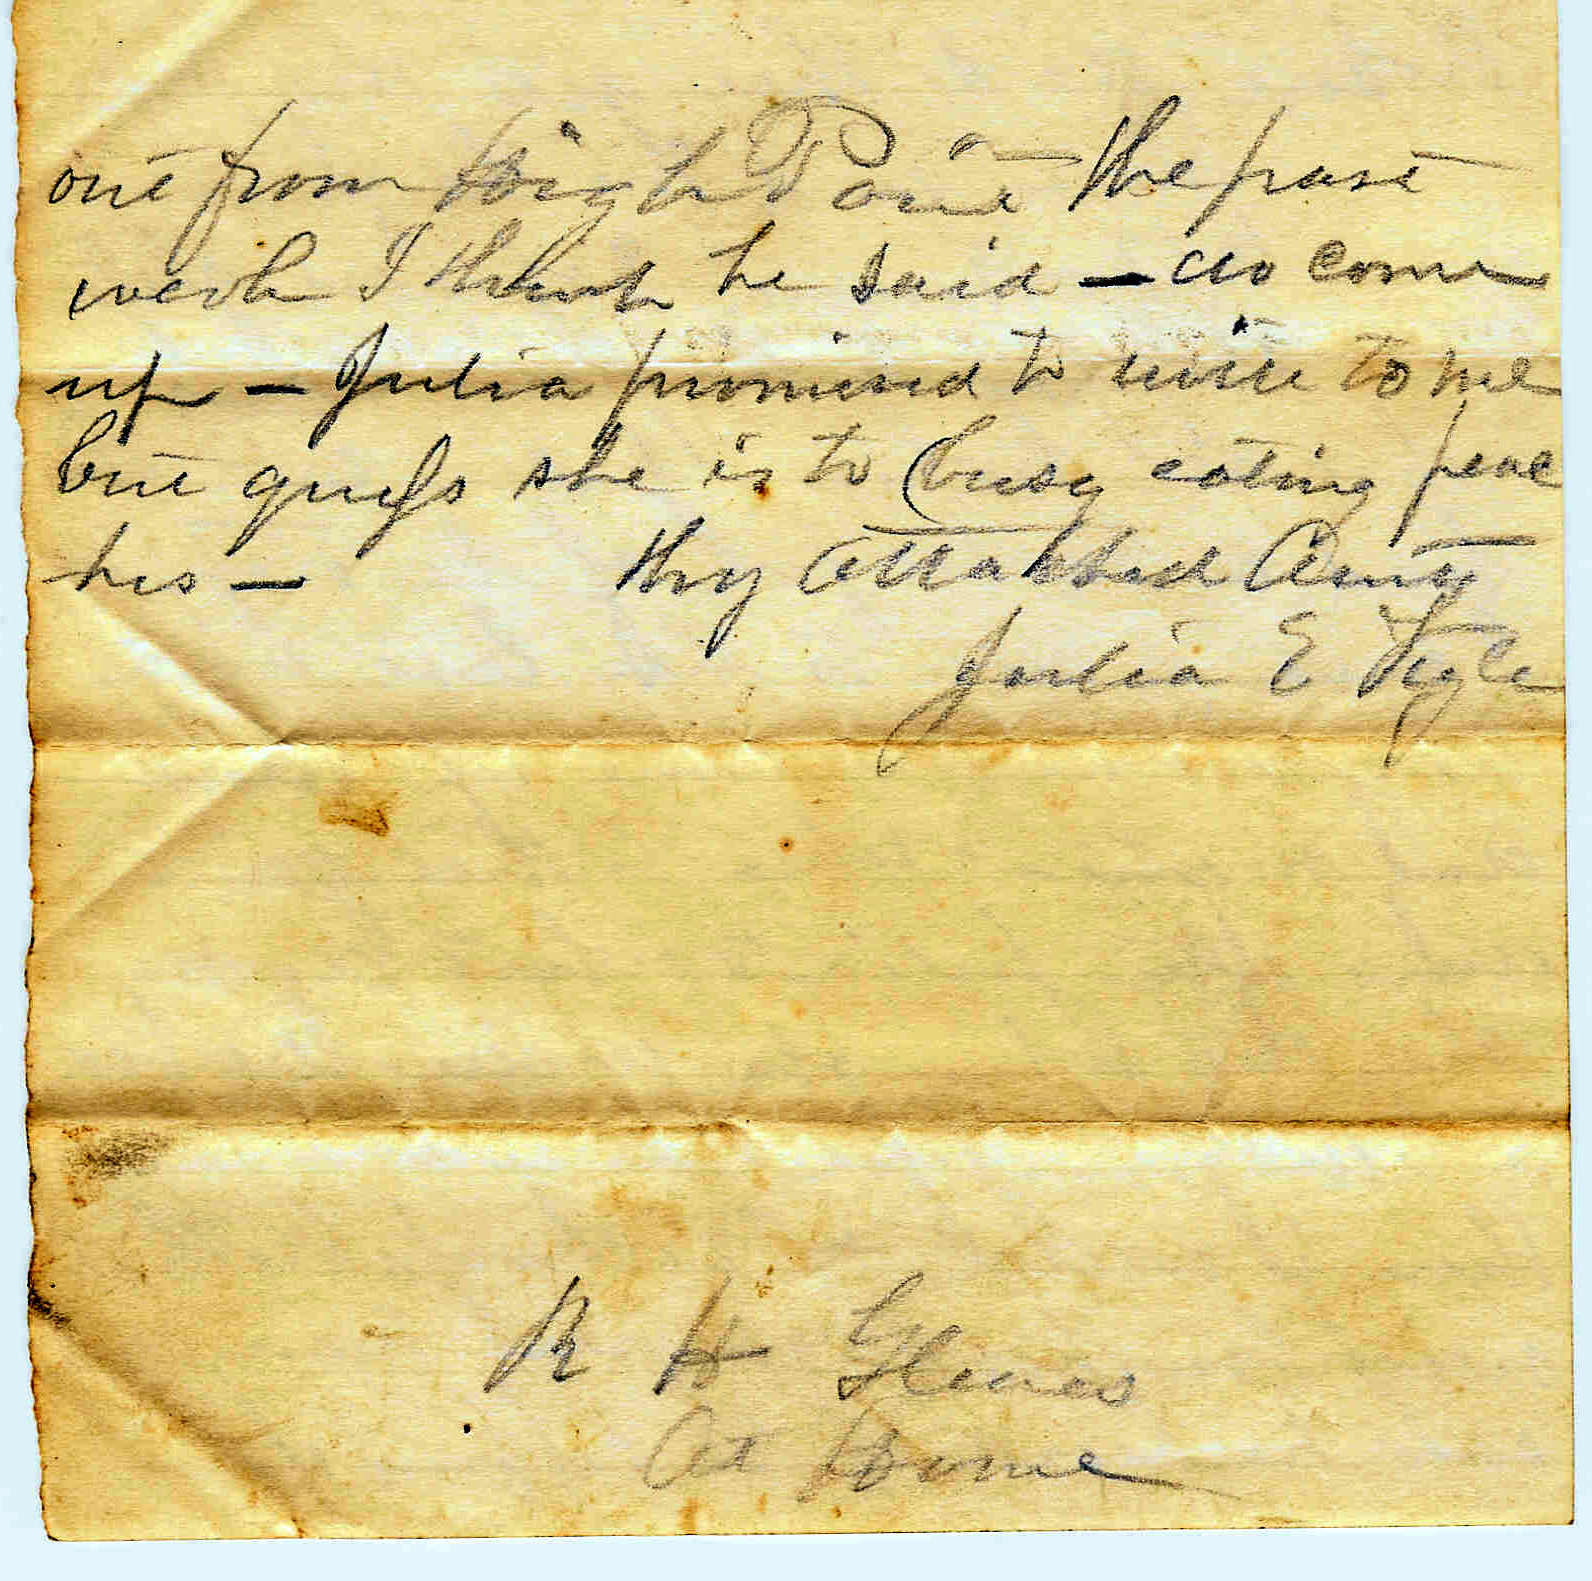 one from High Point the past
week I think he said — do come
up — Julia promised to write to me
but guess she is to busy eating peac
hes — thy attatched Aunt
Julia E
R H
At Home